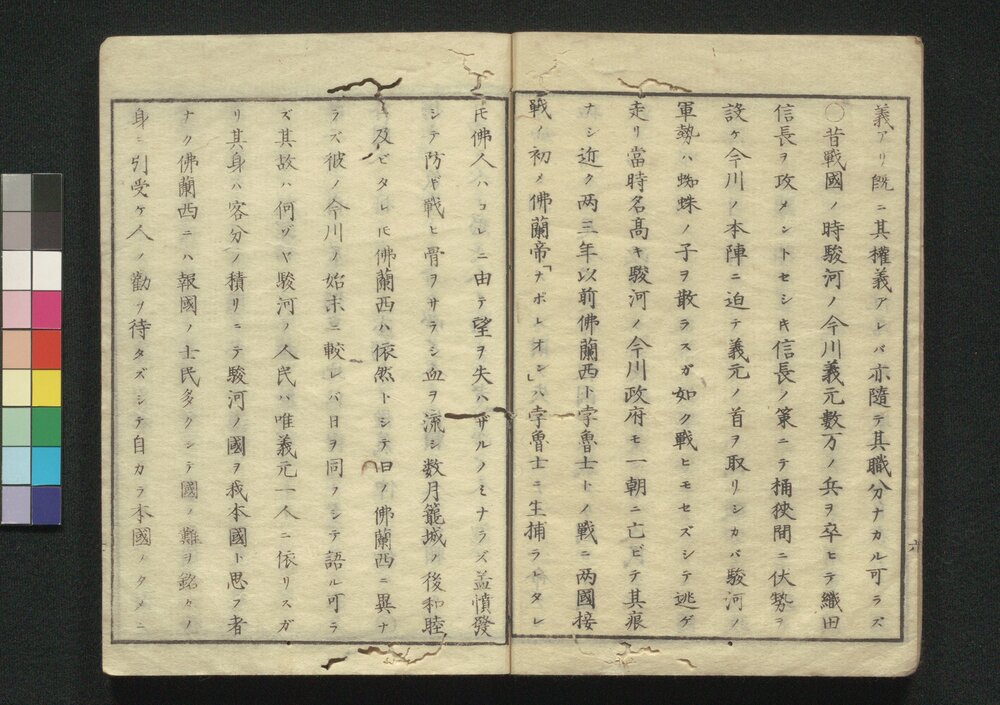 義アリ既ニ其權義アレバ亦隨テ其職分ナカル可ラズ
〇昔戰國ノ時駿河ノ今川義元數万ノ兵ヲ卒ヒテ織田
信長ヲ攻メントセシキ信長ノ策ニテ桶狹間ニ伏勢ヲ
設ケ今川ノ本陣ニ迫テ義元ノ首ヲ取リシカバ駿河ノ
軍勢ハ蜘蛛ノ子ヲ散ラスガ如ク戰ヒモセズシテ逃ゲ
走リ當時名髙キ駿河ノ今川政府モ一朝ニ亡ビテ其痕
ナシ近ク両三年以前佛蘭西ト孛魯士トノ戰ニ両國接
戰ノ初メ佛蘭帝「ナポレオン」ハ孛魯士ニ生捕ラレタレ
𪜈佛人ハコレニ由テ望ヲ失ハザルノミナラズ益憤發
シテ防ギ戰ヒ骨ヲサラシ血ヲ流シ数月籠城ノ後和睦
ニ及ビタレ𪜈佛蘭西ハ依然トシテ旧ノ佛蘭西ニ異ナ
ラズ彼ノ今川ノ始末ニ較レバ日ヲ同フシテ語ル可ラ
ズ其故ハ何ゾヤ駿河ノ人民ハ唯義元一人ニ依リスガ
リ其身ハ客分ノ積リニテ駿河ノ國ヲ我本國ト思フ者
ナク佛蘭西ニハ報國ノ士民多クシテ國ノ難ヲ銘々ノ
身ニ引受ケ人ノ勸ヲ待タズシテ自カラ本國ノタメニ
六